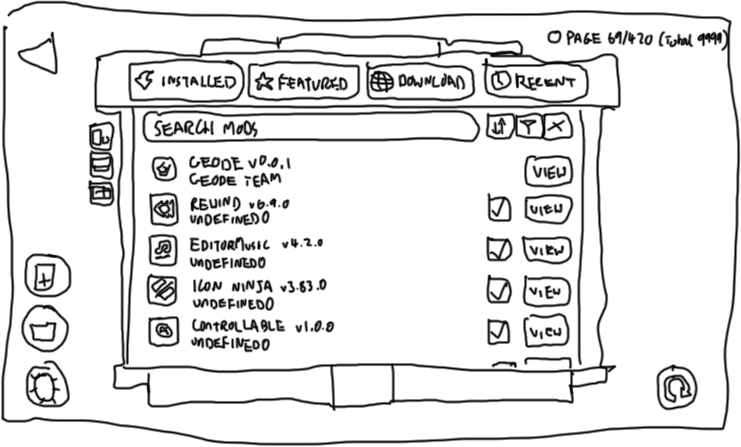 PAGE 69/420 (Total 9999)
INSTALLED
FEATURED
DOWNLOAD
RECENT
SEARCH MODS
GEODE v0.0.1
GEODE TEAM
VIEW
REWIND v6.9.0
UNDEFINED0
VIEW
EDITORMUSIC v4.2.0
UNDEFINED0
VIEW
ICON NINJA v3.83.0
UNDEFINED0
VIEW
CONTROLLABLE v1.0.0
UNDEFINED0
VIEW